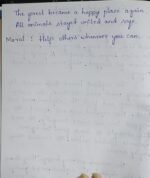 The forest became a happy place again
All animals stayed united and safe.
Moral : Help others whenever you can.